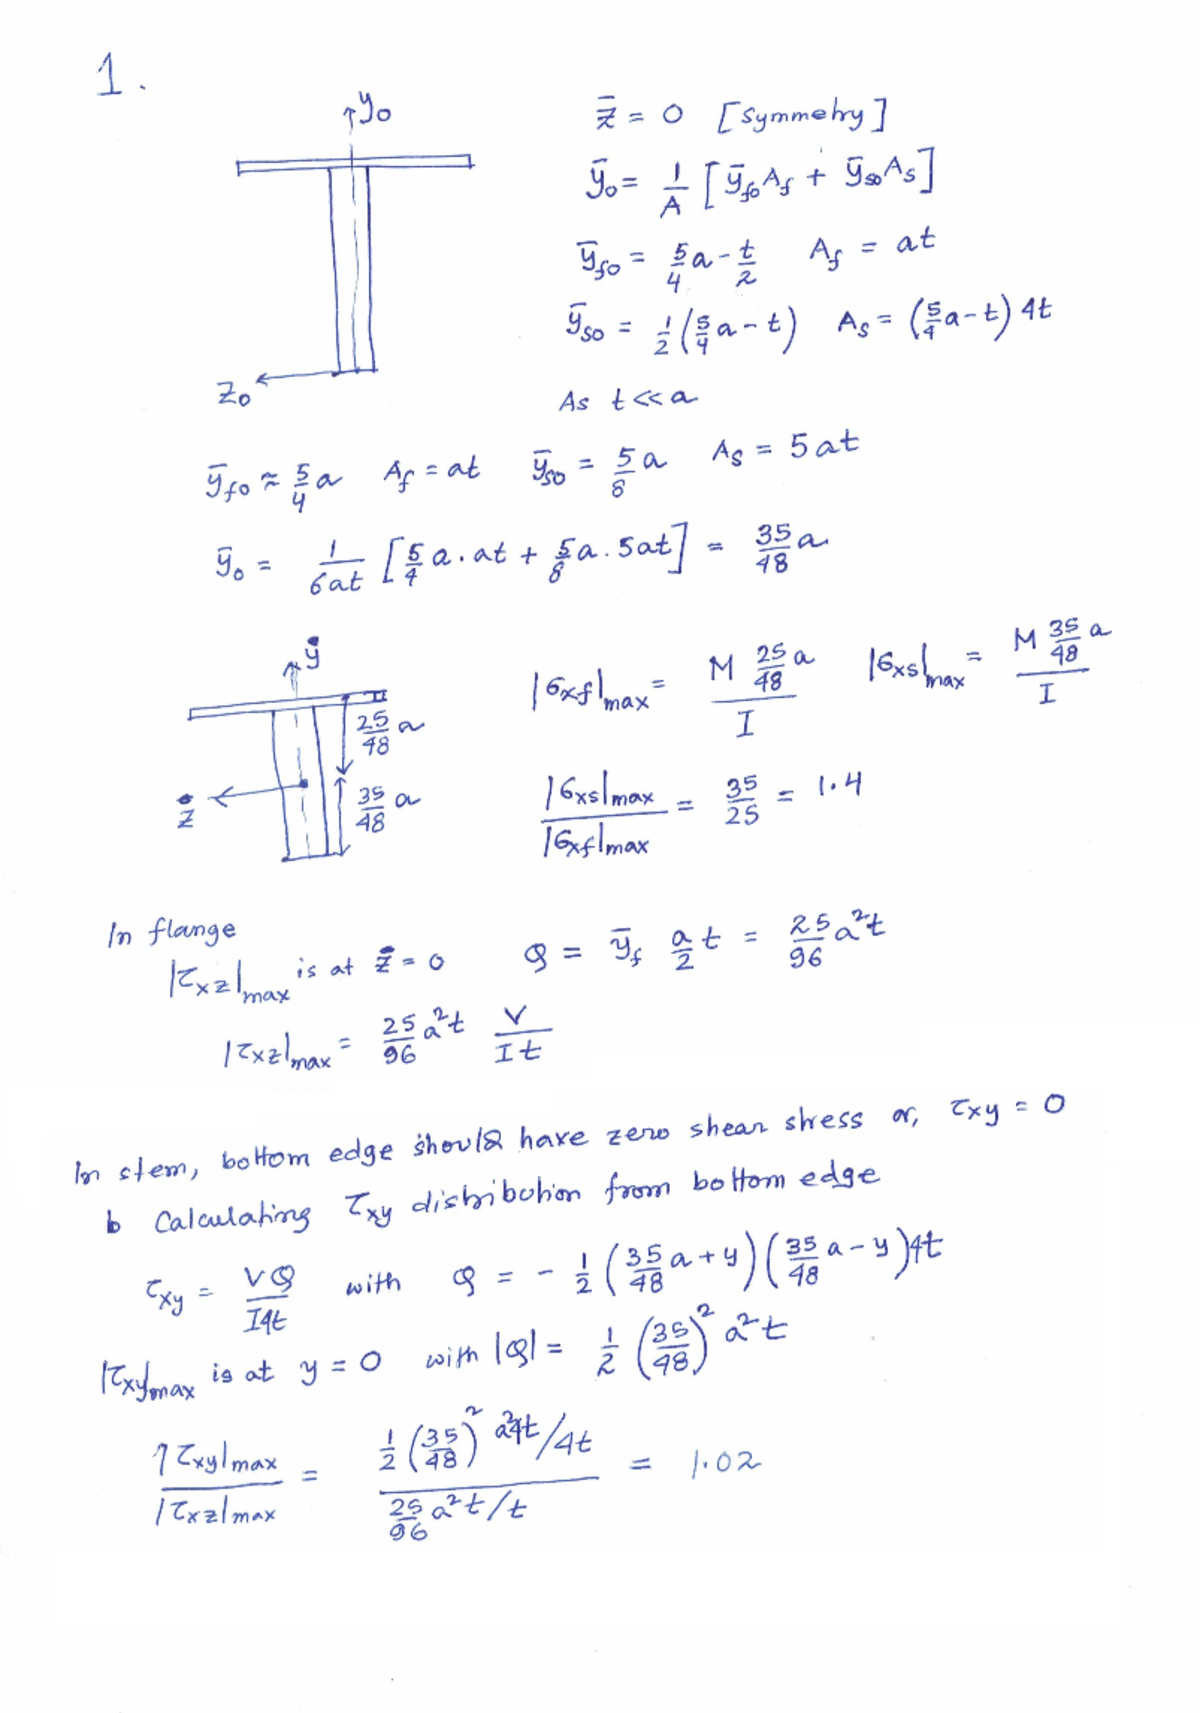 1.
y₀
z̄ = 0 [Symmetry]
ȳ₀ = 1/A [ȳf₀ Af + ȳs₀ As]
ȳf₀ = 5/4 a - t/2 Af = at
ȳs₀ = 1/2 (5/4 a - t) As = (5/4 a - t) 4t
z₀
As t << a
ȳf₀ ≈ 5/4 a Af = at ȳs₀ = 5/8 a As = 5at
ȳ₀ = 1/6at [5/4 a . at + 5/8 a . 5at] = 35/48 a
y
25/48 a
35/48 a
z
|σxf|max = M 25/48 a / I |σxs|max = M 35/48 a / I
|σxs|max / |σxf|max = 35/25 = 1.4
In flange
|τxz|max is at z = 0 Q = ȳf a/2 t = 25/96 a²t
|τxz|max = 25/96 a²t V/It
In stem, bottom edge should have zero shear stress or, τxy = 0
b Calculating τxy distribution from bottom edge
τxy = VQ/I4t with Q = - 1/2 (35/48 a + y) (35/48 a - y) 4t
|τxy|max is at y = 0 with |Q| = 1/2 (35/48)² a²t
|τxy|max / |τxz|max = 1/2 (35/48)² a²4t/4t / 25/96 a²t/t = 1.02